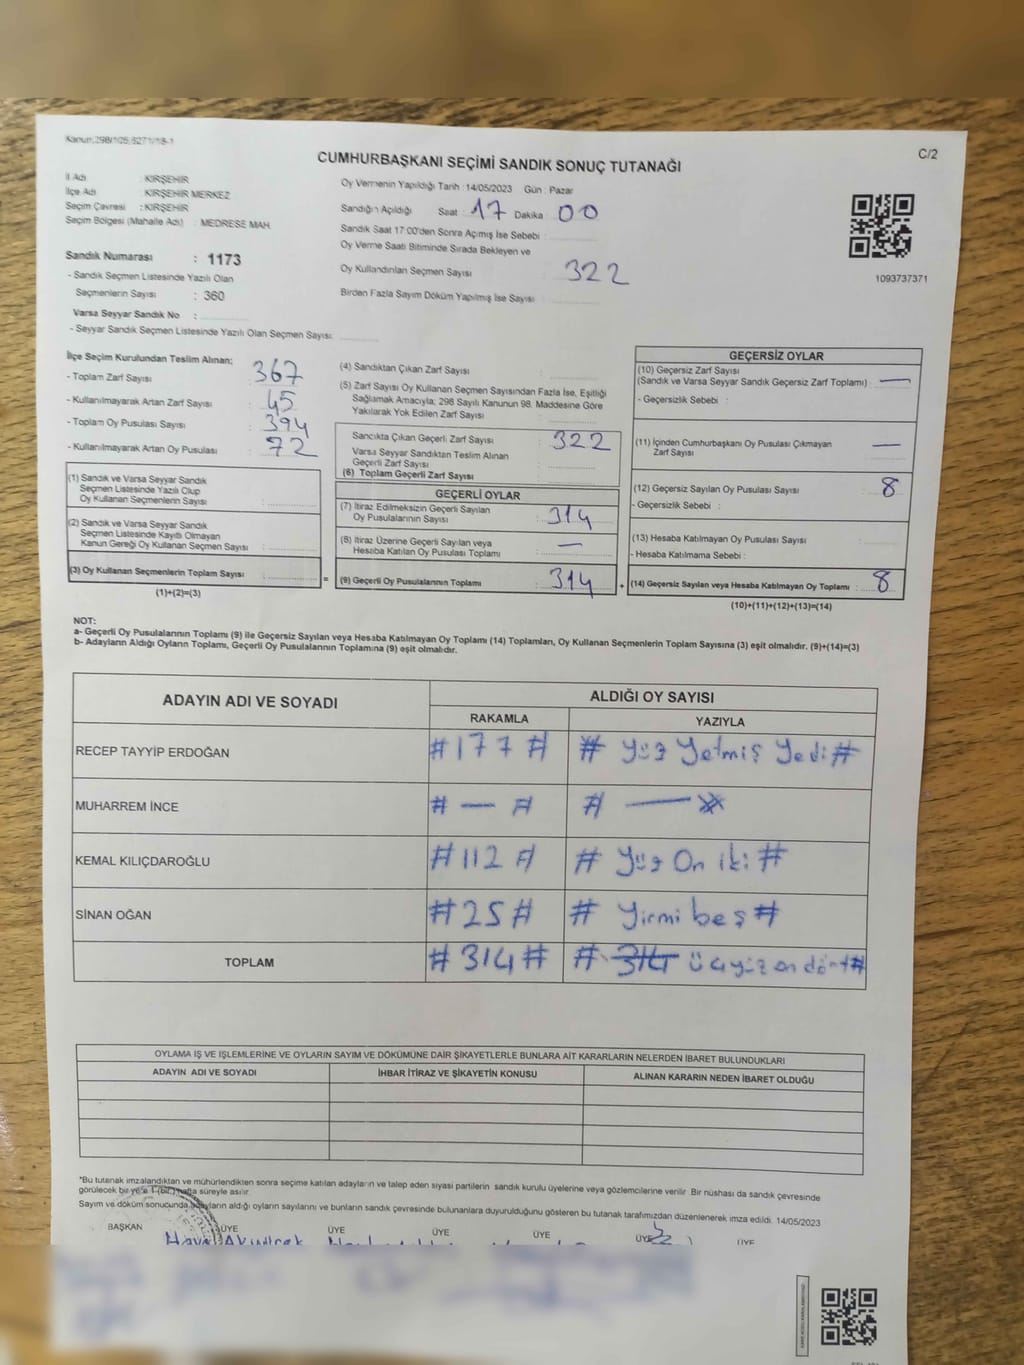 Kanun;298/105,6271/18-1
C/2
CUMHURBAŞKANI SEÇİMİ SANDIK SONUÇ TUTANAĞI
İl Adı KIRŞEHİR
İlçe Adı KIRŞEHİR MERKEZ
Seçim Çevresi : KIRŞEHİR
Seçim Bölgesi (Mahalle Adı) : MEDRESE MAH.
Oy Vermenin Yapıldığı Tarih :14/05/2023 Gün : Pazar
Sandığın Açıldığı Saat : 17 Dakika : 00
Sandık Saat 17:00'den Sonra Açımış İse Sebebi :
Oy Verme Saati Bitiminde Sırada Bekleyen ve
Oy Kullandırılan Seçmen Sayısı : 322
Birden Fazla Sayım Döküm Yapılmış İse Sayısı :
1093737371
Sandık Numarası : 1173
- Sandık Seçmen Listesinde Yazılı Olan
Seçmenlerin Sayısı : 360
Varsa Seyyar Sandık No :
- Seyyar Sandık Seçmen Listesinde Yazılı Olan Seçmen Sayısı:
İlçe Seçim Kurulundan Teslim Alınan;
- Toplam Zarf Sayısı : 367
- Kullanılmayarak Artan Zarf Sayısı : 45
- Toplam Oy Pusulası Sayısı : 394
- Kullanılmayarak Artan Oy Pusulası : 72
(1) Sandık ve Varsa Seyyar Sandık
Seçmen Listesinde Yazılı Olup
Oy Kullanan Seçmenlerin Sayısı :
(2) Sandık ve Varsa Seyyar Sandık
Seçmen Listesinde Kayıtlı Olmayan
Kanun Gereği Oy Kullanan Seçmen Sayısı :
(3) Oy Kullanan Seçmenlerin Toplam Sayısı :
(1)+(2)=(3)
=
(4) Sandıktan Çıkan Zarf Sayısı :
(5) Zarf Sayısı Oy Kullanan Seçmen Sayısından Fazla İse, Eşitliği
Sağlamak Amacıyla; 298 Sayılı Kanunun 98. Maddesine Göre
Yakılarak Yok Edilen Zarf Sayısı :
Sandıkta Çıkan Geçerli Zarf Sayısı : 322
Varsa Seyyar Sandıktan Teslim Alınan
Geçerli Zarf Sayısı :
(6) Toplam Geçerli Zarf Sayısı :
GEÇERLİ OYLAR
(7) İtiraz Edilmeksizin Geçerli Sayılan
Oy Pusulalarının Sayısı : 314
(8) İtiraz Üzerine Geçerli Sayılan veya
Hesaba Katılan Oy Pusulası Toplamı : —
(9) Geçerli Oy Pusulalarının Toplamı : 314
+
GEÇERSİZ OYLAR
(10) Geçersiz Zarf Sayısı
(Sandık ve Varsa Seyyar Sandık Geçersiz Zarf Toplamı) : —
- Geçersizlik Sebebi :
(11) İçinden Cumhurbaşkanı Oy Pusulası Çıkmayan
Zarf Sayısı : —
(12) Geçersiz Sayılan Oy Pusulası Sayısı : 8
- Geçersizlik Sebebi :
(13) Hesaba Katılmayan Oy Pusulası Sayısı :
- Hesaba Katılmama Sebebi :
(14) Geçersiz Sayılan veya Hesaba Katılmayan Oy Toplamı : 8
(10)+(11)+(12)+(13)=(14)
NOT:
a- Geçerli Oy Pusulalarının Toplamı (9) ile Geçersiz Sayılan veya Hesaba Katılmayan Oy Toplamı (14) Toplamları, Oy Kullanan Seçmenlerin Toplam Sayısına (3) eşit olmalıdır. (9)+(14)=(3)
b- Adayların Aldığı Oyların Toplamı, Geçerli Oy Pusulalarının Toplamına (9) eşit olmalıdır.
ADAYIN ADI VE SOYADI ALDIĞI OY SAYISI
RAKAMLA YAZIYLA
RECEP TAYYİP ERDOĞAN #177# # Yüz Yetmiş Yedi #
MUHARREM İNCE # — # # — #
KEMAL KILIÇDAROĞLU #112# # Yüz On iki #
SİNAN OĞAN #25# # Yirmi beş #
TOPLAM #314# # 314 üçyüz on dört #
OYLAMA İŞ VE İŞLEMLERİNE VE OYLARIN SAYIM VE DÖKÜMÜNE DAİR ŞİKAYETLERLE BUNLARA AİT KARARLARIN NELERDEN İBARET BULUNDUKLARI
ADAYIN ADI VE SOYADI İHBAR İTİRAZ VE ŞİKAYETİN KONUSU ALINAN KARARIN NEDEN İBARET OLDUĞU
*Bu tutanak imzalandıktan ve mühürlendikten sonra seçime katılan adayların ve talep eden siyasi partilerin sandık kurulu üyelerine veya gözlemcilerine verilir. Bir nüshası da sandık çevresinde
görülecek bir yere 1 (bir) hafta süreyle asılır.
Sayım ve döküm sonucunda adayların aldığı oyların sayılarını ve bunların sandık çevresinde bulunanlara duyurulduğunu gösteren bu tutanak tarafımızdan düzenlenerek imza edildi. 14/05/2023
BAŞKAN ÜYE ÜYE ÜYE ÜYE ÜYE ÜYE